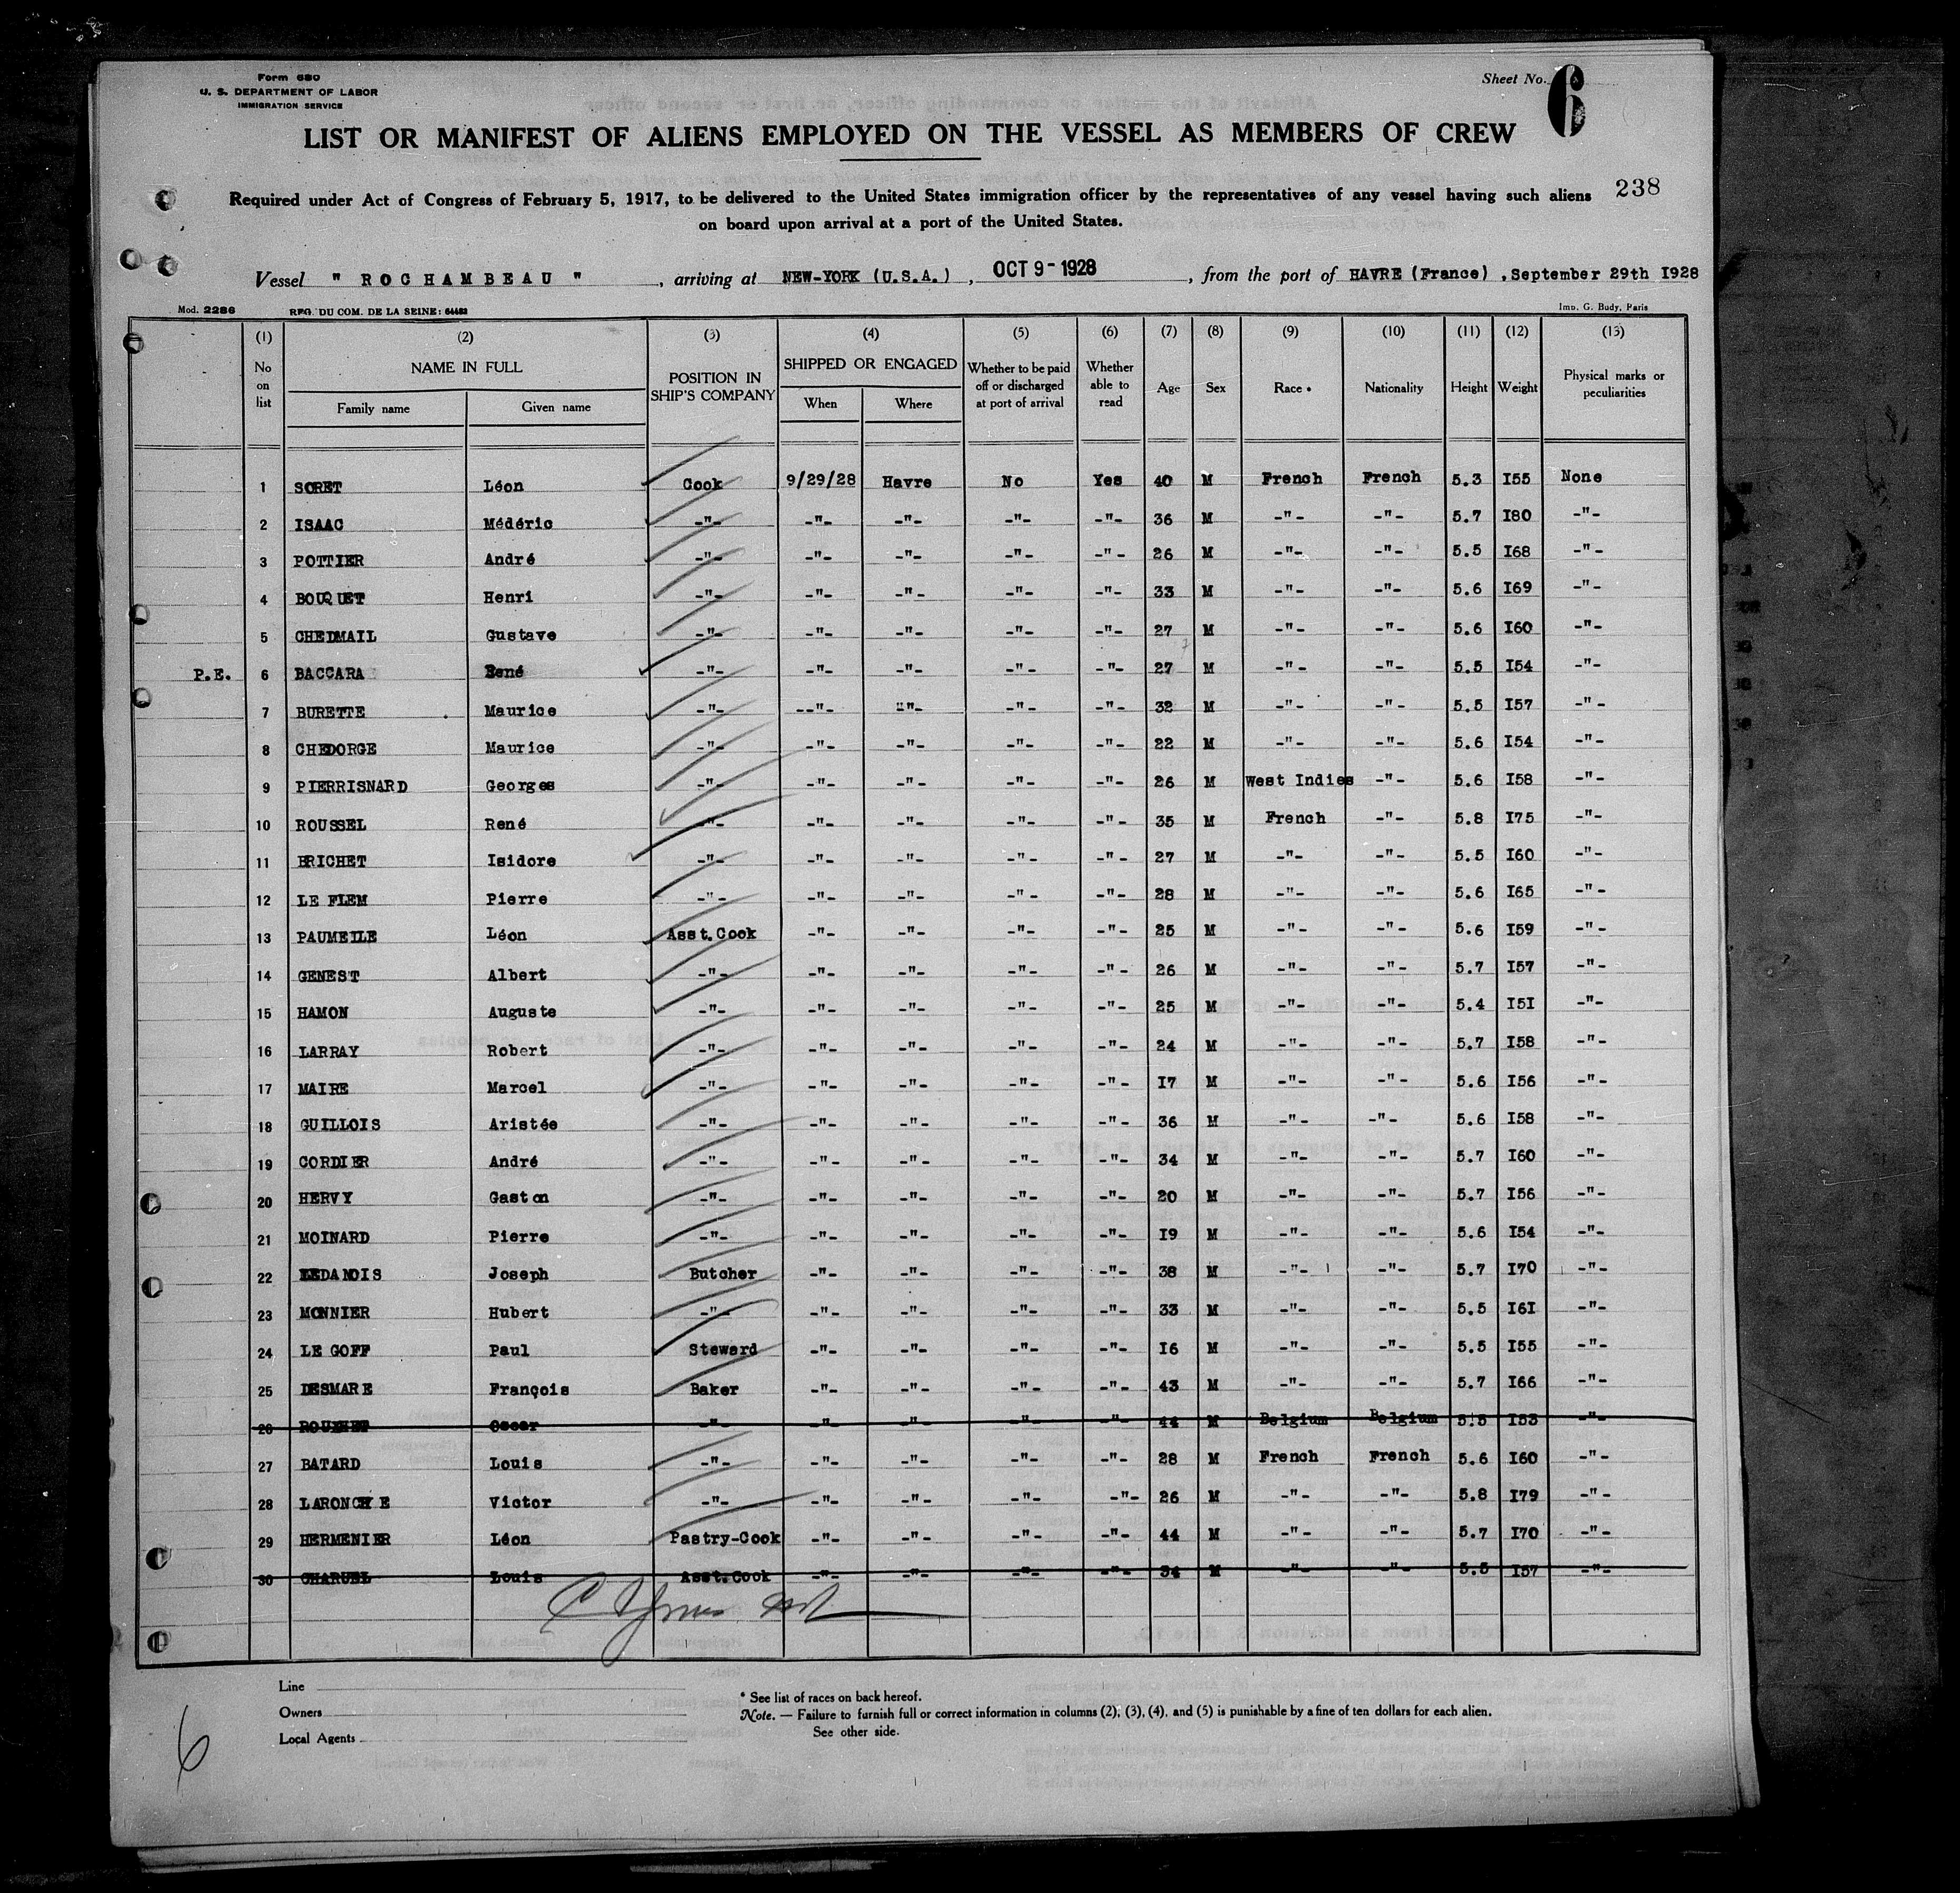 Form 680
U. S. DEPARTMENT OF LABOR
IMMIGRATION SERVICE
Sheet No. 6
LIST OR MANIFEST OF ALIENS EMPLOYED ON THE VESSEL AS MEMBERS OF CREW
Required under Act of Congress of February 5, 1917, to be delivered to the United States immigration officer by the representatives of any vessel having such aliens 238
on board upon arrival at a port of the United States.
Vessel " ROCHAMBEAU " , arriving at NEW-YORK (U.S.A.) , OCT 9 - 1928 , from the port of HAVRE (France) , September 29th I928
Mod. 2286 REG. DU COM. DE LA SEINE: Imp. G. Budy, Paris
(1) (2) (3) (4) (5) (6) (7) (8) (9) (10) (11) (12) (13)
No on list NAME IN FULL Family name Given name POSITION IN SHIP'S COMPANY SHIPPED OR ENGAGED When Where Whether to be paid off or discharged at port of arrival Whether able to read Age Sex Race * Nationality Height Weight Physical marks or peculiarities
1 SORET Léon Cook 9/29/28 Havre No Yes 40 M French French 5.3 I55 None
2 ISAAC Médéric -"- -"- -"- -"- -"- 36 M -"- -"- 5.7 I80 -"-
3 POTTIER André -"- -"- -"- -"- -"- 26 M -"- -"- 5.5 I68 -"-
4 BOUQUET Henri -"- -"- -"- -"- -"- 33 M -"- -"- 5.6 I69 -"-
5 CHEDMAIL Gustave -"- -"- -"- -"- -"- 27 M -"- -"- 5.6 I60 -"-
P.E. 6 BACCARA René -"- -"- -"- -"- -"- 27 M -"- -"- 5.5 I54 -"-
7 BURETTE Maurice -"- --"- -"- -"- -"- 32 M -"- -"- 5.5 I57 -"-
8 CHEDORGE Maurice -"- -"- -"- -"- -"- 22 M -"- -"- 5.6 I54 -"-
9 PIERRISNARD Georges -"- -"- -"- -"- -"- 26 M West Indies -"- 5.6 I58 -"-
10 ROUSSEL René -"- -"- -"- -"- -"- 35 M French -"- 5.8 I75 -"-
11 BRICHET Isidore -"- -"- -"- -"- -"- 27 M -"- -"- 5.5 I60 -"-
12 LE FLEM Pierre -"- -"- -"- -"- -"- 28 M -"- -"- 5.6 I65 -"-
13 PAUMEILE Léon Asst.Cook -"- -"- -"- -"- 25 M -"- -"- 5.6 I59 -"-
14 GENEST Albert -"- -"- -"- -"- -"- 26 M -"- -"- 5.7 I57 -"-
15 HAMON Auguste -"- -"- -"- -"- -"- 25 M -"- -"- 5.4 I5I -"-
16 LARRAY Robert -"- -"- -"- -"- -"- 24 M -"- -"- 5.7 I58 -"-
17 MAIRE Marcel -"- -"- -"- -"- -"- I7 M -"- -"- 5.6 I56 -"-
18 GUILLOIS Aristée -"- -"- -"- -"- -"- 36 M -"- -"- 5.6 I58 -"-
19 CORDIER André -"- -"- -"- -"- -"- 34 M -"- -"- 5.7 I60 -"-
20 HERVY Gaston -"- -"- -"- -"- -"- 20 M -"- -"- 5.7 I56 -"-
21 MOINARD Pierre -"- -"- -"- -"- -"- I9 M -"- -"- 5.6 I54 -"-
22 LEDANOIS Joseph Butcher -"- -"- -"- -"- 38 M -"- -"- 5.7 I70 -"-
23 MONNIER Hubert -"- -"- -"- -"- -"- 33 M -"- -"- 5.5 I6I -"-
24 LE GOFF Paul Steward -"- -"- -"- -"- I6 M -"- -"- 5.5 I55 -"-
25 DESMARE François Baker -"- -"- -"- -"- 43 M -"- -"- 5.7 I66 -"-
26 Oscar -"- -"- -"- -"- -"- 44 M Belgium Belgium 5.5 I53 -"-
27 BATARD Louis -"- -"- -"- -"- -"- 28 M French French 5.6 I60 -"-
28 LARONCHE Victor -"- -"- -"- -"- -"- 26 M -"- -"- 5.8 I79 -"-
29 HERMENIER Léon Pastry-Cook -"- -"- -"- -"- 44 M -"- -"- 5.7 I70 -"-
30 CHARUEL Louis Asst.Cook -"- -"- -"- -"- 34 M -"- -"- 5.5 I57 -"-
Line
Owners
Local Agents
* See list of races on back hereof.
Note. — Failure to furnish full or correct information in columns (2), (3), (4), and (5) is punishable by a fine of ten dollars for each alien.
See other side.
6